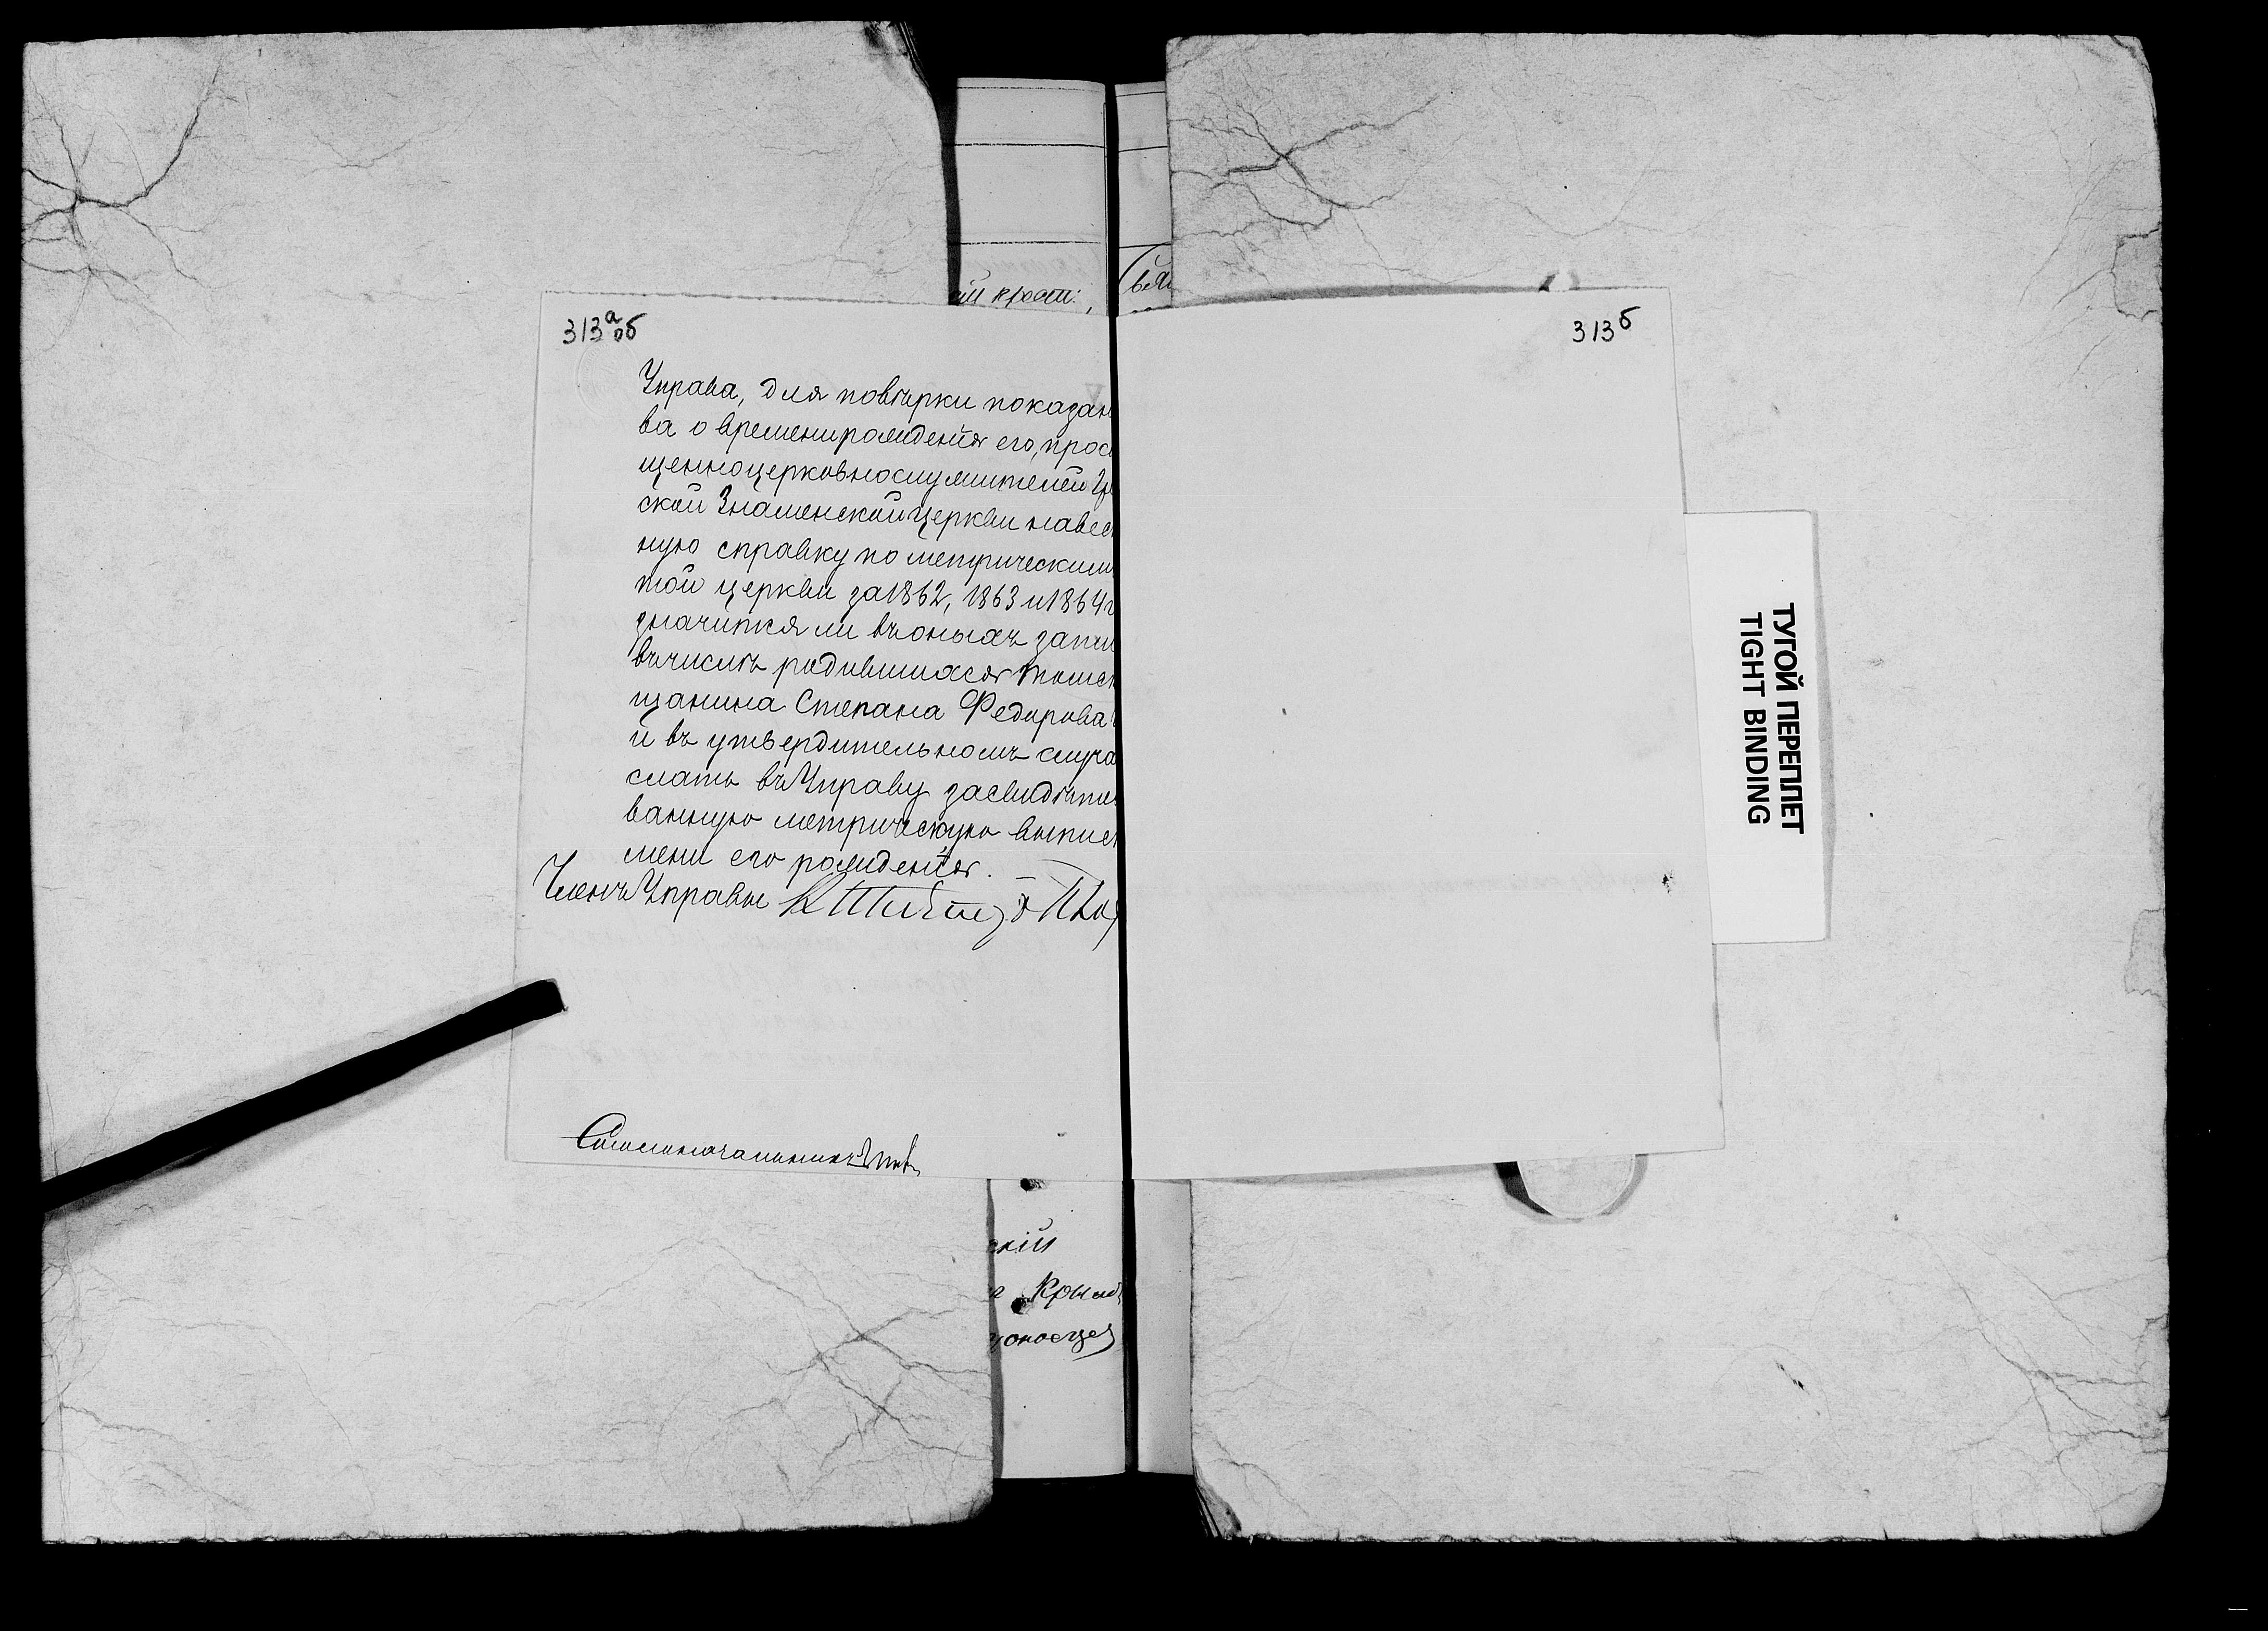 ій крест:
313а об
313б
Управа, для повѣрки показан
ва о времени рожденія его, прос
щенноцерковнослужителей Гр
ской Знаменской церкви навес
ную справку по метрическим
той церкви за 1862, 1863 и 1864 г
значится ли въ оныхъ запи
въ числѣ родившихся томск
щанина Степана Федорова
и въ утвердительномъ случа
слать въ Управу засвидѣтел
ванную метрическую выпис
мени его рожденія.
Членъ Управы
ТУГОЙ ПЕРЕПЛЕТ
TIGHT BINDING
Столоначальникъ
скій
Крыл